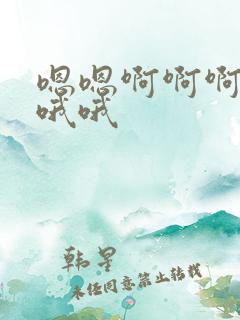 嗯嗯啊啊啊
哦哦
韩星
未经同意禁止转载